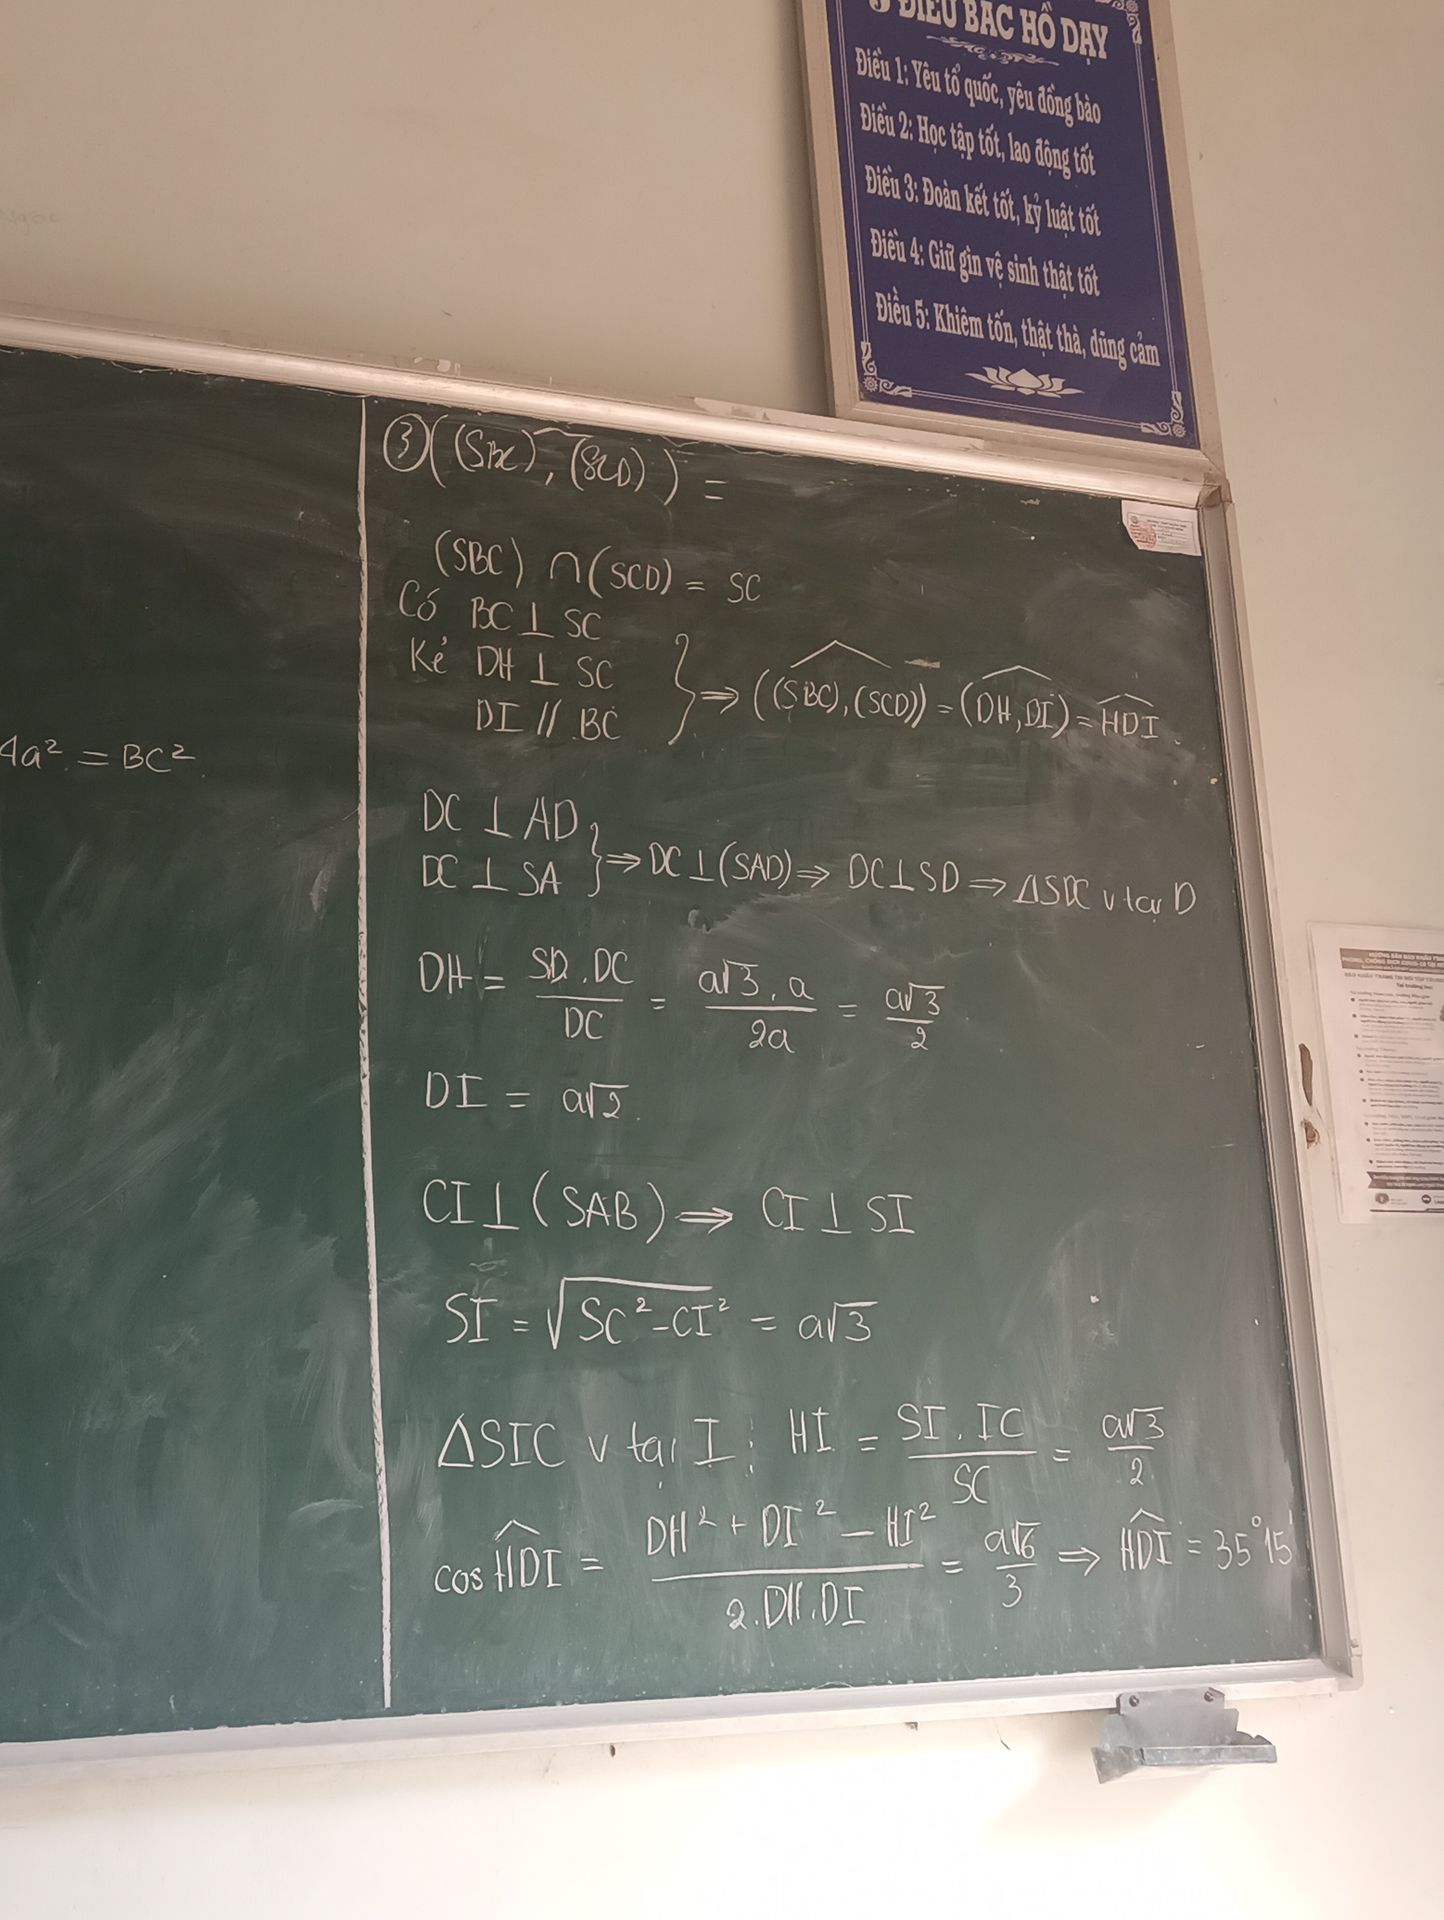 5 ĐIỀU BÁC HỒ DẠY
Điều 1: Yêu tổ quốc, yêu đồng bào
Điều 2: Học tập tốt, lao động tốt
Điều 3: Đoàn kết tốt, kỷ luật tốt
Điều 4: Giữ gìn vệ sinh thật tốt
Điều 5: Khiêm tốn, thật thà, dũng cảm
4a² = BC²
③ ((SBC), (SCD)) =
(SBC) ∩ (SCD) = SC
Có BC ⊥ SC
Kẻ DH ⊥ SC
DI // BC
} ⇒ ((SBC), (SCD)) = (DH, DI) = HDI
DC ⊥ AD
DC ⊥ SA
} ⇒ DC ⊥ (SAD) ⇒ DC ⊥ SD ⇒ ΔSDC v tại D
DH = SD.DC / DC = a√3.a / 2a = a√3 / 2
DI = a√2
CI ⊥ (SAB) ⇒ CI ⊥ SI
SI = √SC² - CI² = a√3
ΔSIC v tại I: HI = SI.IC / SC = a√3 / 2
cos HDI = DH² + DI² - HI² / 2.DH.DI = a√6 / 3 ⇒ HDI = 35°15'